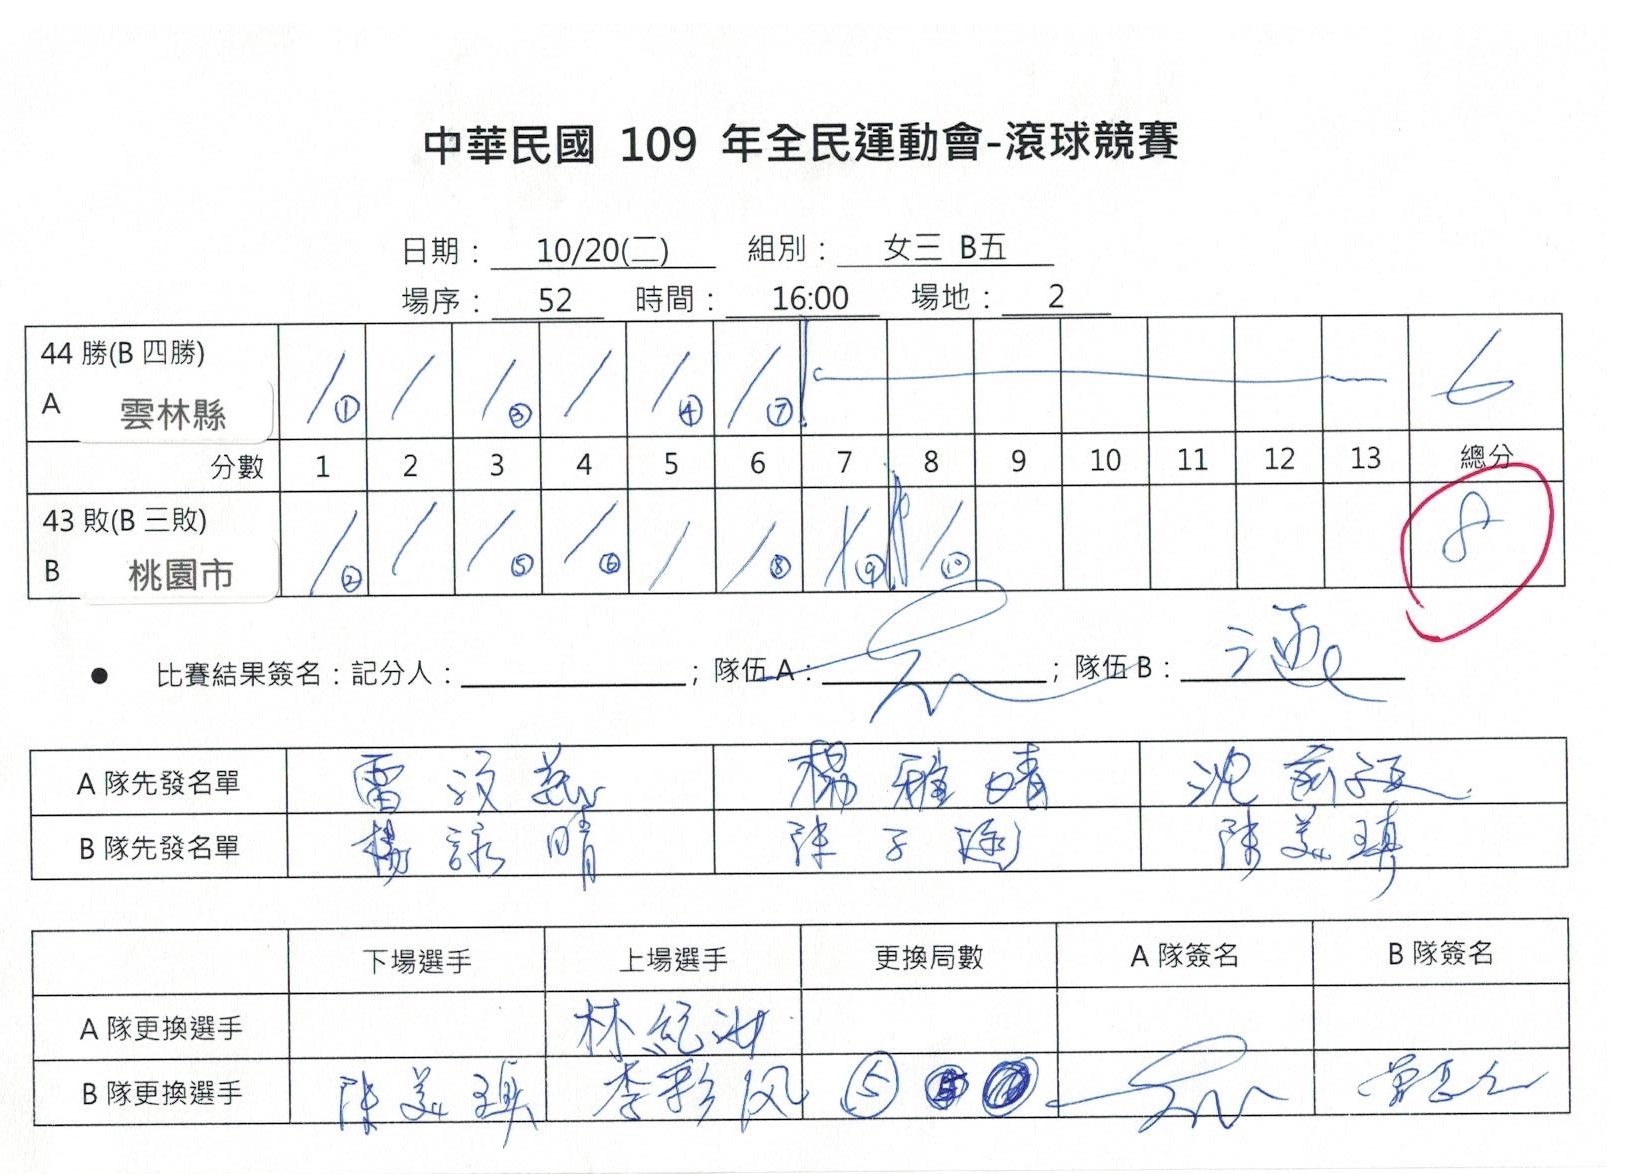 中華民國 109 年全民運動會-滾球競賽
日期： 10/20(二) 組別： 女三 B五
場序： 52 時間： 16:00 場地： 2
44 勝(B 四勝)
A 雲林縣 / ① / / ③ / / ④ / ⑦ 6
分數 1 2 3 4 5 6 7 8 9 10 11 12 13 總分
43 敗(B 三敗)
B 桃園市 / ② / / ⑤ / ⑥ / / ⑧ / ⑨ / ⑩ 8
● 比賽結果簽名：記分人： ；隊伍 A： ；隊伍 B：
A 隊先發名單 雷 楊 雅 晴 沈
B 隊先發名單 楊 詠 晴 陳 子 陳 美
下場選手 上場選手 更換局數 A 隊簽名 B 隊簽名
A 隊更換選手 林 紀
B 隊更換選手 陳 美 李 彩 ⑤